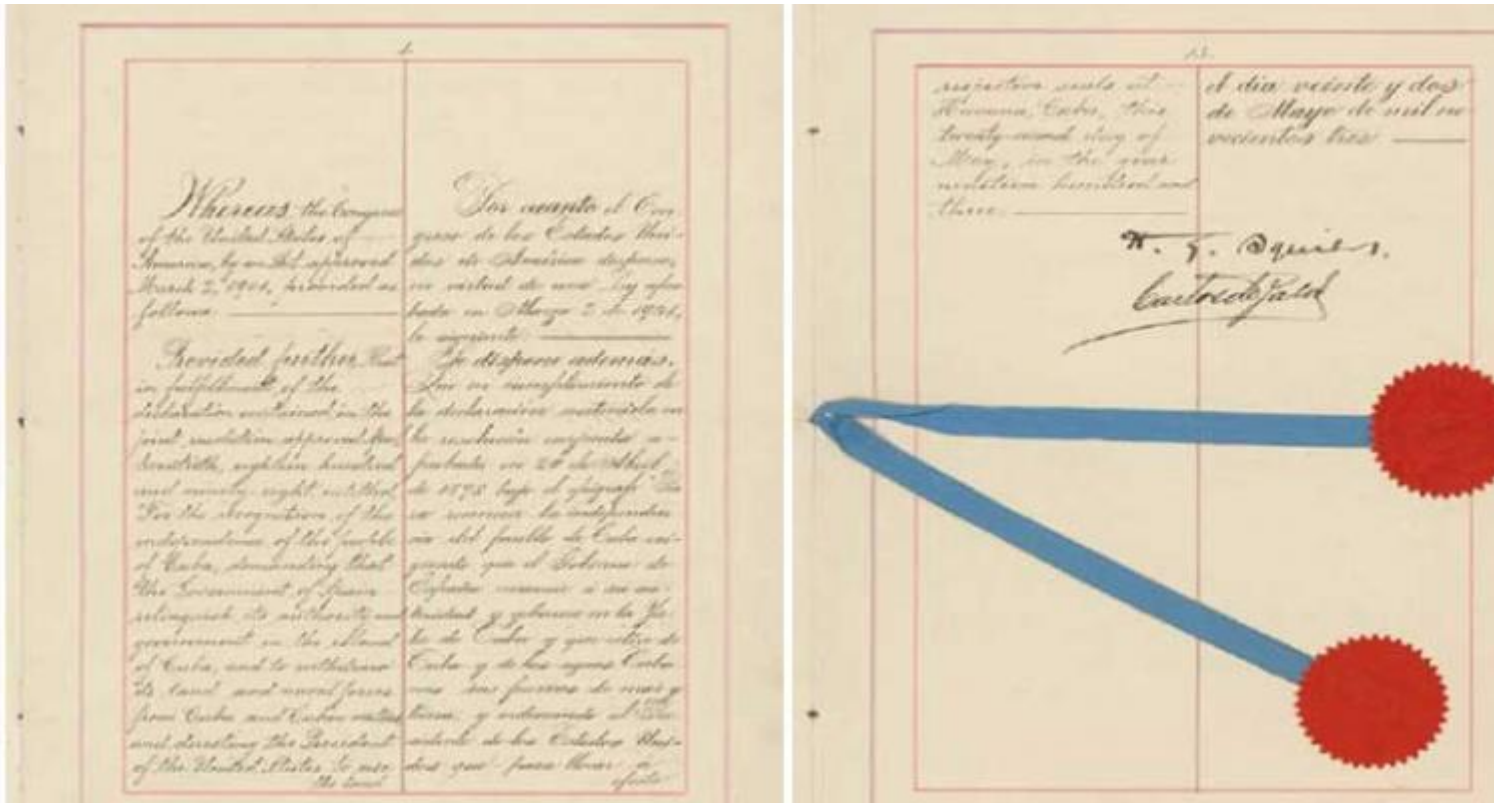 1.
Whereas the Congress
of the United States of
America, by an Act approved
March 2, 1901, provided as
follows:
Provided further, That
in fulfillment of the
declaration contained in the
joint resolution approved
twentieth, eighteen hundred
and ninety-eight, entitled
"For the recognition of the
independence of the people
of Cuba, demanding that
the Government of Spain
relinquish its authority and
government in the island
of Cuba, and to withdraw
its land and naval forces
from Cuba and Cuban waters
and directing the President
of the United States to use
the land
Por cuanto el Con-
greso de los Estados Uni-
dos de América dispuso,
en virtud de una ley apro-
bada en Marzo 2 de 1901,
lo siguiente:
Se dispone además,
Que en cumplimiento de
la declaración contenida en
la resolución conjunta a-
probada en 20 de Abril
de 1898 bajo el epígrafe
la independen-
cia del pueblo de Cuba exi-
giendo que el Gobierno de
España renuncie a su au-
toridad y gobierno en la Is-
la de Cuba y que retire de
Cuba y de las aguas Cuba-
nas sus fuerzas de mar y
tierra y ordenando al Pre-
sidente de los Estados Uni-
dos que para llevar a
efecto
respective seals at
Havana, Cuba, this
twenty-second day of
May, in the year
nineteen hundred and
three.
el dia veinte y dos
de Mayo de mil no
vecientos tres